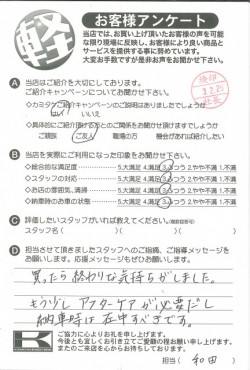 軽
お客様アンケート
当店では、お買い上げ頂いたお客様の声を可能
な限り現場に反映し、お客様により良い商品と
サービスを提供する事に努めています。
大変お手数ですが是非お声をお聞かせ下さい。
A 当店はご紹介を大切にしております。
ご紹介キャンペーンについてお聞かせ下さい。
◇カミタケご紹介キャンペーンのご説明はありましたでしょうか
はい いいえ
◇具体的にご紹介頂けるとのご関係をお聞かせ頂けますでしょうか
ご親族 ご友人 職場の方 機会があればご紹介したい
B 当店を実際にご利用になった印象をお聞かせ下さい。
◇総合的な満足度 5.大満足 4.満足 3.ふつう 2.やや不満 1.不満
◇スタッフの対応 5.大満足 4.満足 3.ふつう 2.やや不満 1.不満
◇お店の雰囲気、清掃 5.大満足 4.満足 3.ふつう 2.やや不満 1.不満
◇納車時のお車の状態 5.大満足 4.満足 3.ふつう 2.やや不満 1.不満
C 評価したいスタッフがいれば教えてください。
スタッフ名( )( )( )
D 担当させて頂きましたスタッフへのご指摘、ご指導メッセージを
お願いします。応援メッセージもぜひお願いします。
買ったら終わりな気持ちがしました。
もう少しアフターケアが必要だし
納車時は在中すべきです。
K
ご協力に心よりお礼を申し上げます。
今後とも宜しくお引き立てご愛顧の程お願い申し上げます。
またのご来店を心からお待ちしております。
担当( 和田 )